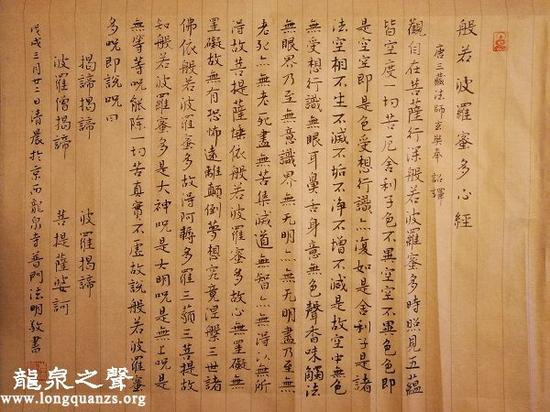 般若波羅蜜多心經
唐三藏法師玄奘奉 詔譯
觀自在菩薩行深般若波羅蜜多時照見五蘊
皆空度一切苦厄舍利子色不異空空不異色色即
是空空即是色受想行識亦復如是舍利子是諸
法空相不生不滅不垢不淨不增不減是故空中無色
無受想行識無眼耳鼻舌身意無色聲香味觸法
無眼界乃至無意識界無無明亦無無明盡乃至無
老死亦無老死盡無苦集滅道無智亦無得以無所
得故菩提薩埵依般若波羅蜜多故心無罣礙無
罣礙故無有恐怖遠離顛倒夢想究竟涅槃三世諸
佛依般若波羅蜜多故得阿耨多羅三藐三菩提故
知般若波羅蜜多是大神咒是大明咒是無上咒是
無等等咒能除一切苦真實不虛故說般若波羅蜜
多咒即說咒曰
揭諦揭諦 波羅揭諦
波羅僧揭諦 菩提薩婆訶
戊戌三月廿二日清晨於京西龍泉寺普門法明敬書
龍泉之聲
www.longquanzs.org